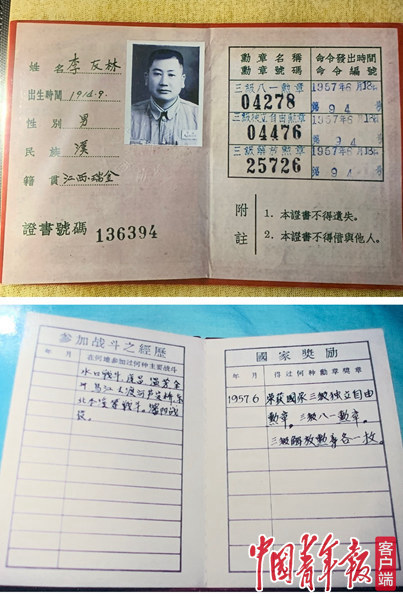 姓名 李友林
出生時間 1914.9.
性別 男
民族 漢
籍貫 江西·瑞金
證書號碼 136394
勳章名稱
勳章號碼
命令發出時間
命令編號
三級八一勳章
04278
1957年6月18日
第 9 4 号
三級獨立自由勳章
04476
1957年6月18日
第 9 4 号
三級解放勳章
25726
1957年6月18日
第 9 4 号
附註
1. 本證書不得遺失。
2. 本證書不得借與他人。
参加战斗之經歷
年 月 在何地参加过何种主要战斗
水口战斗、
大渡河
等战斗。
國家獎励
年 月 得过何种勳章獎章
1957.6 荣获國家三級独立自由
勳章。三級八一勳章。
三級解放勳章各一枚。
中國青年报
客户端